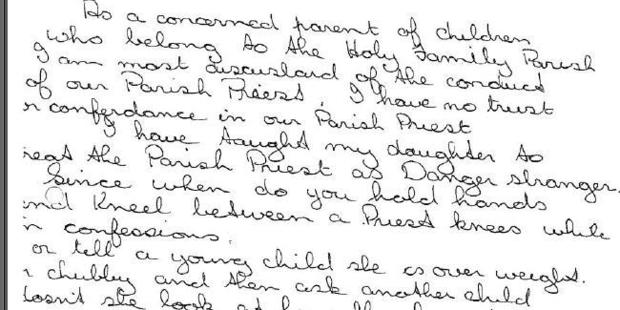 As a concerned parent of children
who belong to the Holy Family Parish
I am most of the conduct
of our Parish Priest, I have no trust
in our Parish Priest
I have taught my daughter to
the Parish Priest as Danger stranger.
Since when do you hold hands
Kneel between a Priest knees while
confessions.
or tell a young child she is over weight.
chubby and then ask another child
she look at